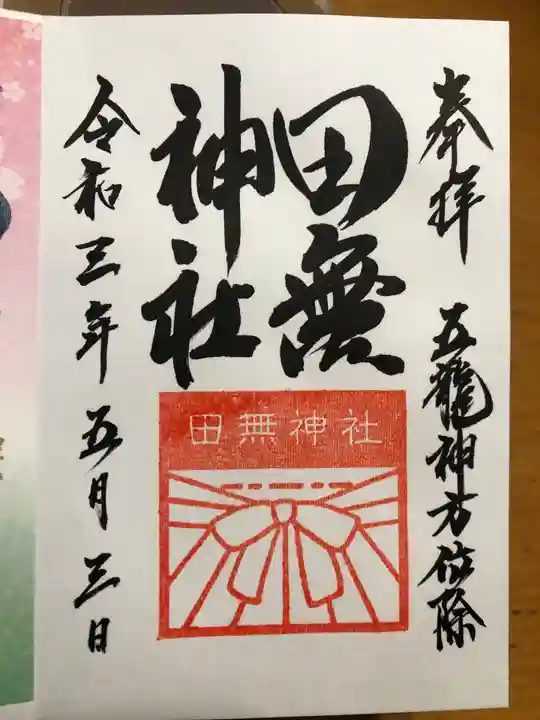 奉拝　五龍神方位除
田無
神社
田無神社
令和三年五月三日